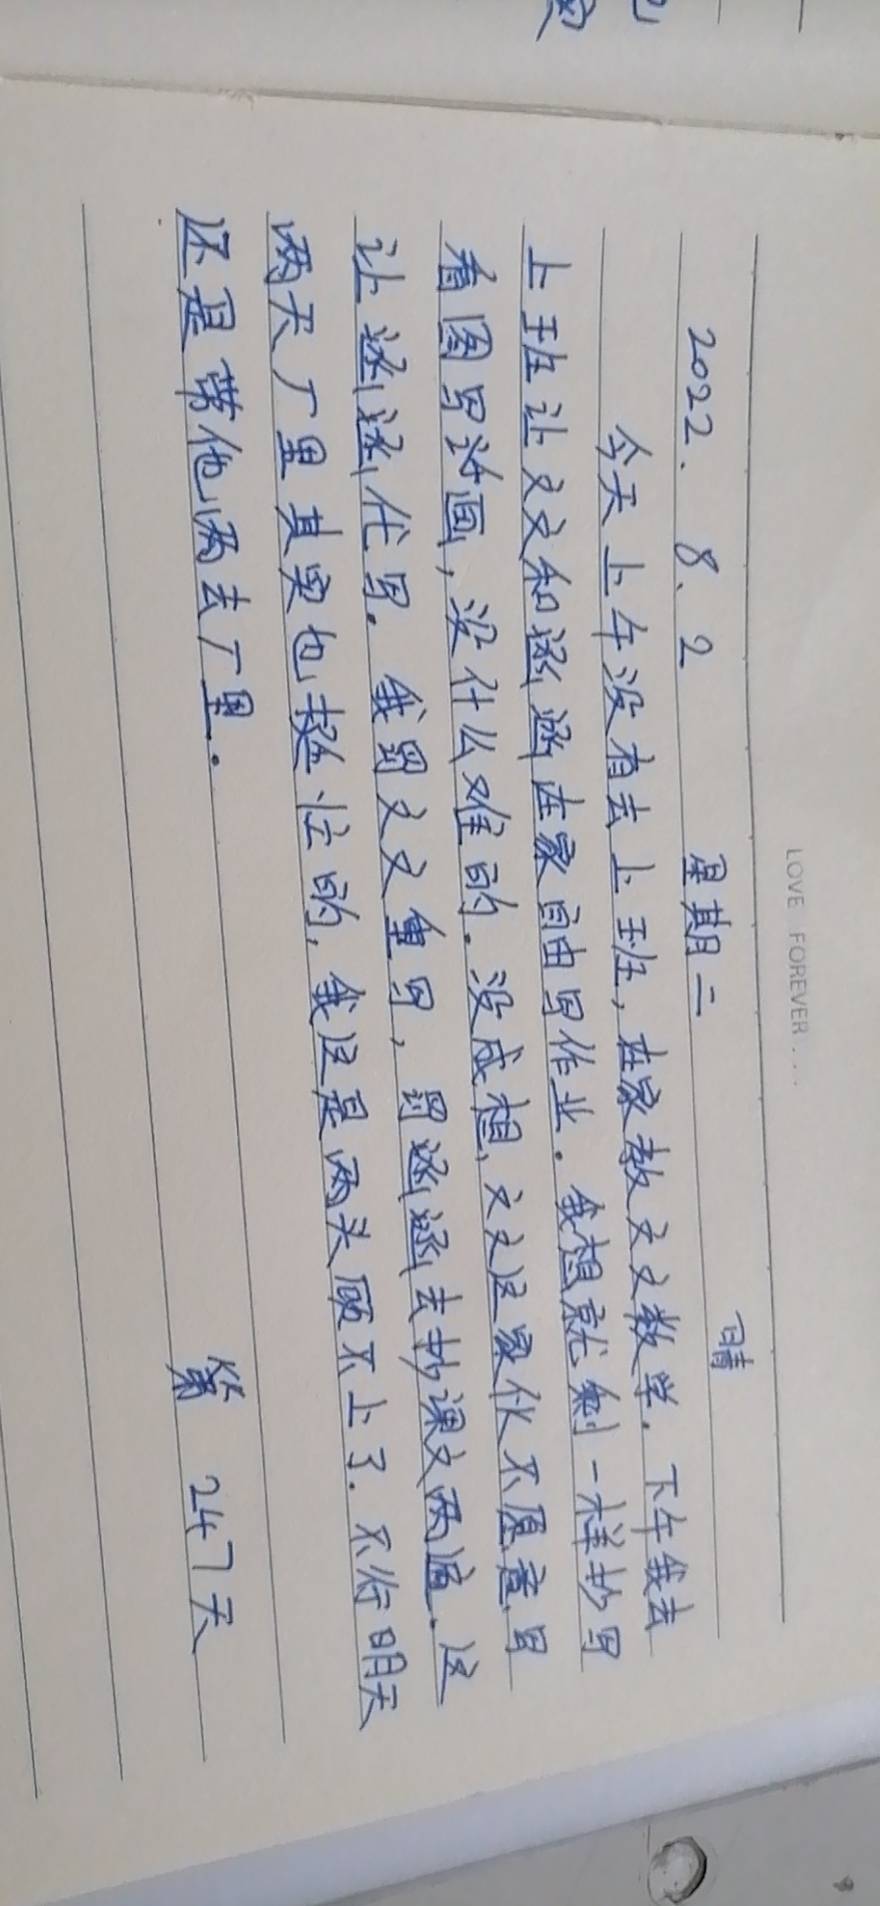 LOVE FOREVER...
2022. 8. 2 星期二 晴
今天上午没有去上班，在家教文文数学。下午我去
上班让文文和涵涵在家自由写作业。我想就剩一样抄写
看图写话画，没什么难的。没成想，文文这家伙不愿意写
让涵涵代写。我罚文文重写，罚涵涵去抄课文两遍。这
两天厂里其实也挺忙的，我这是两头顾不上了。不行明天
还是带他两去厂里。
第 247天